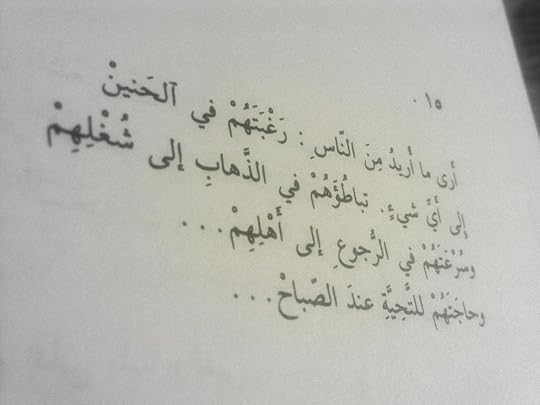 ١٥ .
أَرى ما أُريدُ مِنَ النّاسِ : رَغْبَتَهُمْ في ٱلحَنينْ
إلى أَيِّ شيْءٍ. تباطُؤَهُمْ في الذَّهابِ إلى شُغْلِهِمْ
وسُرْعَتَهُمْ في الرُّجوعِ إلى أَهْلِهِمْ ...
وحاجَتَهُمْ للتَّحِيَّةِ عندَ الصَّباحْ ...